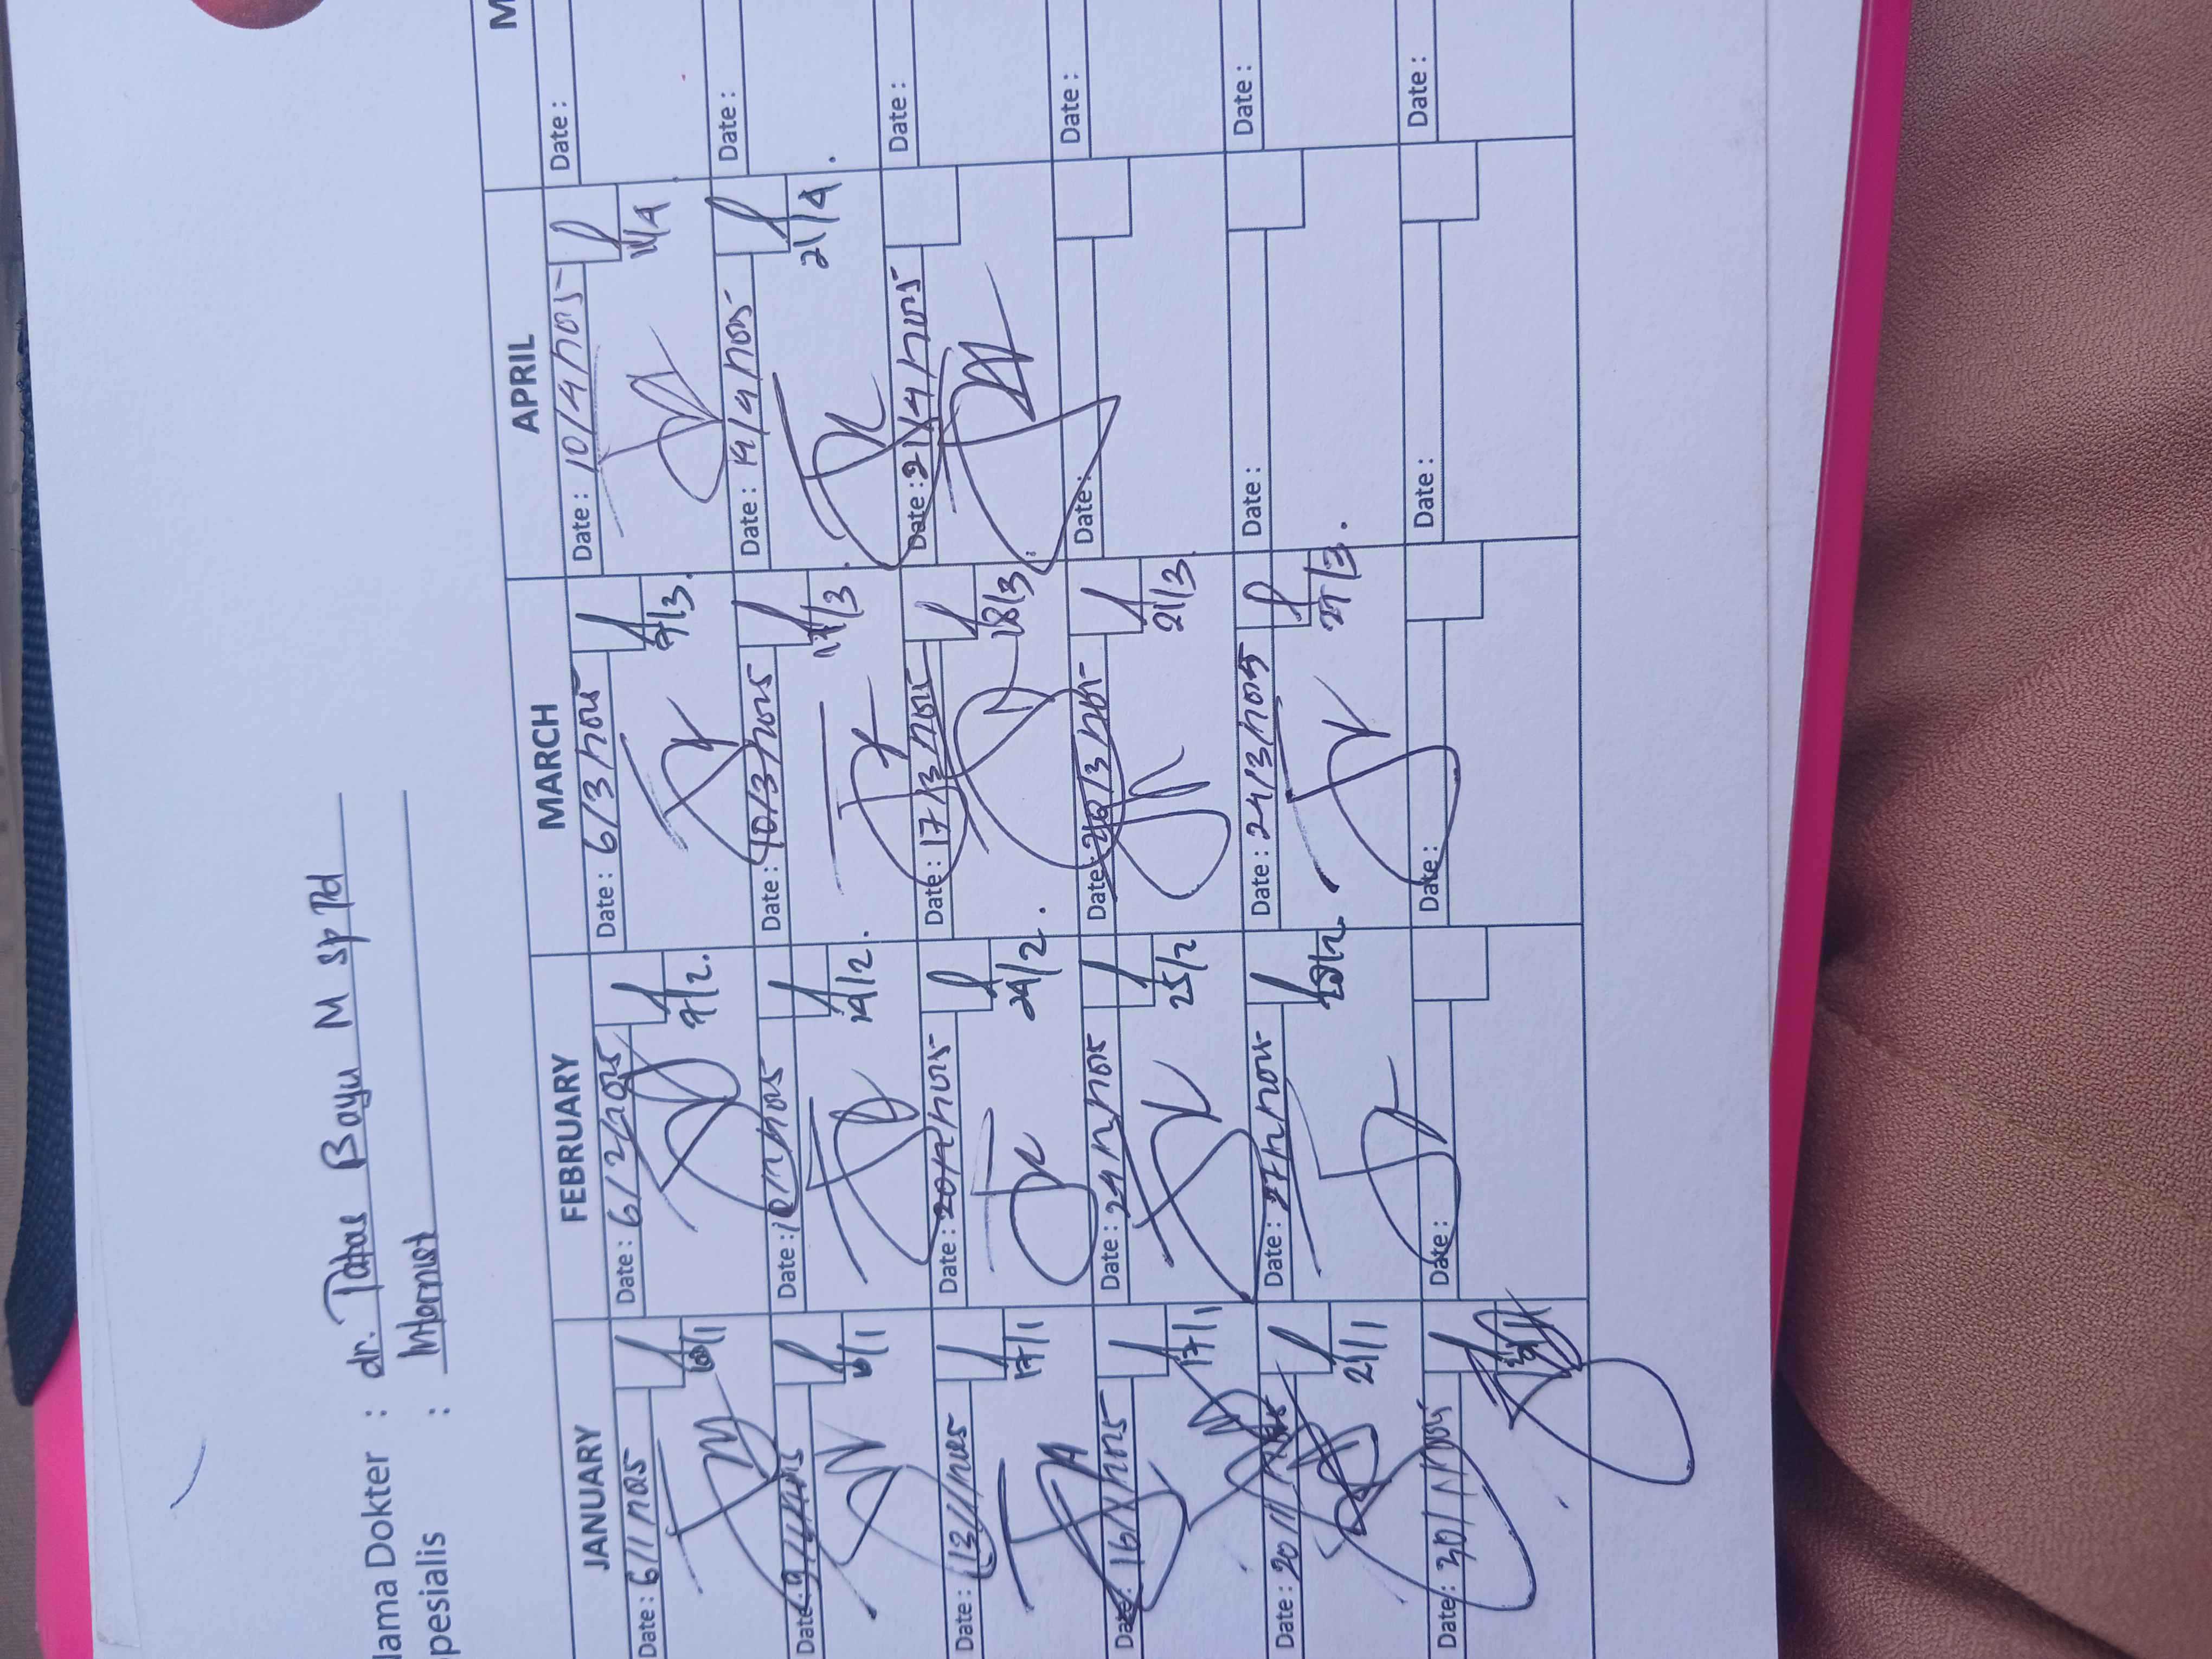 lama Dokter : dr. Tatar Bayu M Sp Pd
pesialis : Internist
JANUARY FEBRUARY MARCH APRIL M
Date : 6/1/2025 Date : 6/2/2025 Date : 6/3/2025 Date : 10/4/2025 Date :
7/2. 7/3. 11/4
Date : 9/1/2025 Date : 10/2/2025 Date : 10/3/2025 Date : 19/4/2025 Date :
14/2. 17/3. 21/4.
Date : 13/1/2025 Date : 20/2/2025 Date : 17/3/2025 Date : 21/4/2025 Date :
17/1 24/2. 18/3
Date : 16/1/2025 Date : 24/2/2025 Date : /3/2025 Date : Date :
17/1 25/2 21/3
Date : 20/1/2025 Date : 27/2/2025 Date : 24/3/2025 Date : Date :
21/1 28/2. 27/3.
Date : 30/1/2025 Date : Date : Date : Date :